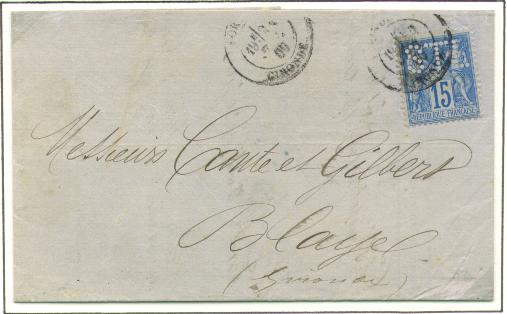 GIRONDE
15
RÉPUBLIQUE FRANÇAISE
Messieurs Cante et Gilbert
Blaye
(Gironde)